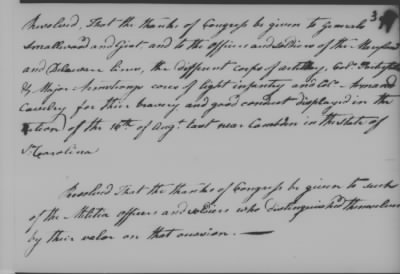 Resolved, That the thanks of Congress be given to Generals
Smallwood and Gist, and to the officers and soldiers of the Maryland
and Delaware lines, the different corps of artillery, Colo. Porterfield's
& Major Armstrongs corps of light infantry and Colo. Armand's
Cavalry for their bravery and good conduct displayed in the
action of the 16th of Augt. last near Cambden in the State of
So. Carolina
Resolved That the thanks of Congress be given to such
of the Militia officers and soldiers who distinguished themselves
by their valor on that occasion. —